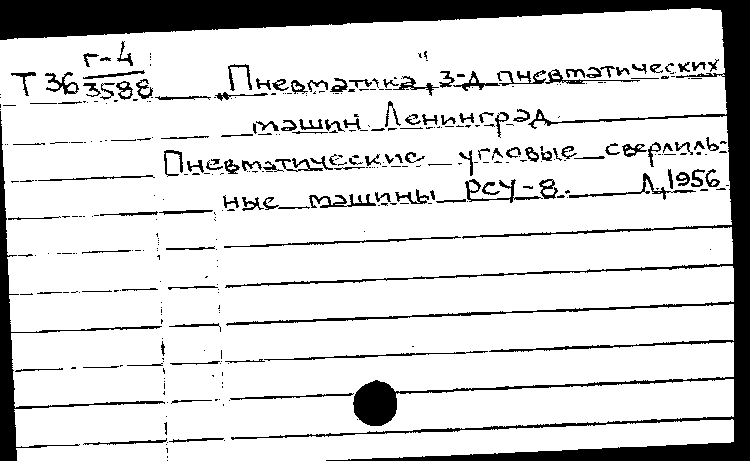 Т 36 г-4/3588 „Пневматика“, з-д пневматических
машин Ленинград
Пневматические угловые сверлиль-
ные машины РСУ-8. Л., 1956